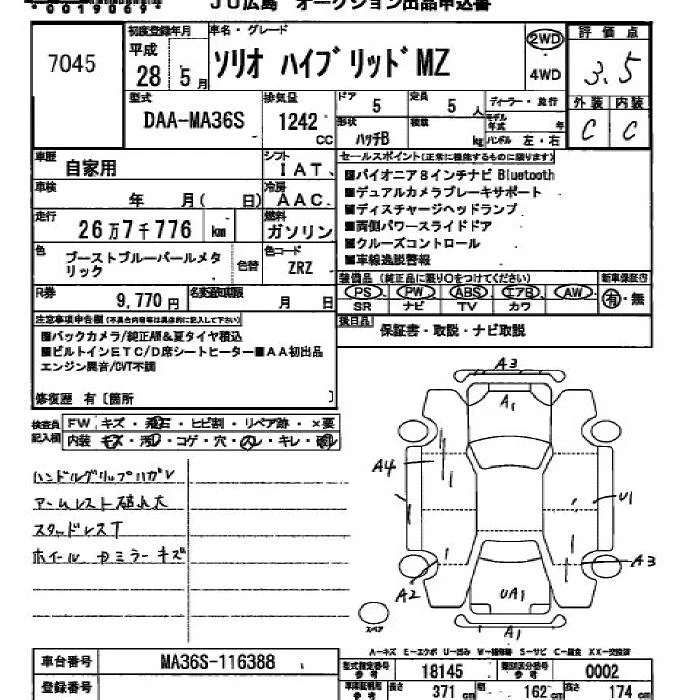 00190694
JU広島 オークション出品申込書
7045
初度登録年月
平成
28 5月
車名・グレード
ソリオ ハイブリッドMZ
2WD
4WD
評価点
3.5
外装 内装
C C
型式
DAA-MA36S
排気量
1242 cc
ドア 5
定員 5 人
形状 ハッチB
積載 kg
ディーラー・並行
モデル年式 年
ハンドル 左・右
車歴 自家用
シフト IAT
車検 年 月( 日)
冷房 AAC
走行 26万7千776 km
燃料 ガソリン
色 ブーストブルーパールメタリック
色替
色コード ZRZ
R券 9,770円
名変期限 月 日
セールスポイント(正常に機能するものに限ります)
■パイオニア8インチナビ Bluetooth
■デュアルカメラブレーキサポート
■ディスチャージヘッドランプ
■両側パワースライドドア
■クルーズコントロール
■車線逸脱警報
装備品(純正品に限り○をつけてください)
新車保証書
PS PW ABS エアB AW
有・無
SR ナビ TV カワ
後日品 保証書・取説・ナビ取説
注意事項申告欄(不具合内容等は具体的に記入して下さい)
■バックカメラ/純正AW&夏タイヤ積込
■ビルトインETC/D席シートヒーター■AA初出品
エンジン異音/CVT不調
修復歴 有〔箇所 〕
検査員記入欄
FW キズ・飛石・ヒビ割・リペア跡・×要
内装 キズ・汚レ・コゲ・穴・ハレ・キレ・破レ
ハンドルグリップハガレ
アームレスト破れ大
スタッドレスT
ホイール ドミラーキズ
A3
A1
A4
U1
A2
A3
UA1
A1
スペア
A-キズ E-エクボ U-凹み W-補修跡 S-サビ C-腐食 XX-交換済
車台番号 MA36S-116388
型式指定番号 18145
類別区分番号 0002
登録番号
長さ 371 cm
幅 162 cm
高さ 174 cm